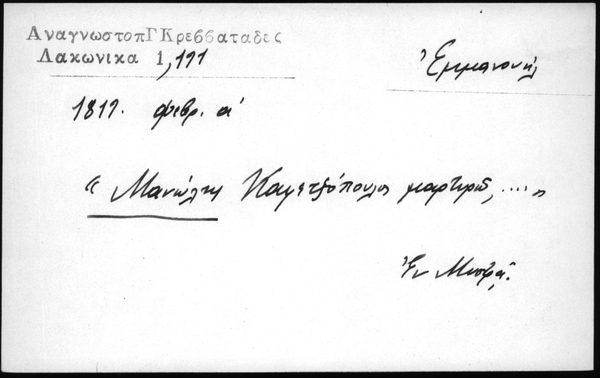 ΑναγνωστοπΓΚρεββαταδες
Λακωνικα 1,111
Ἐμμανουήλ
1811. φεβρ. α'
“ Μανώλης Καμετζόπουλος μαρτυρῶ, .... „
Ἐν Μυστρᾷ.